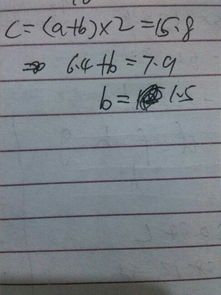 C=(a+b)×2=15.8
⇒ 6.4+b=7.9
b=1.5